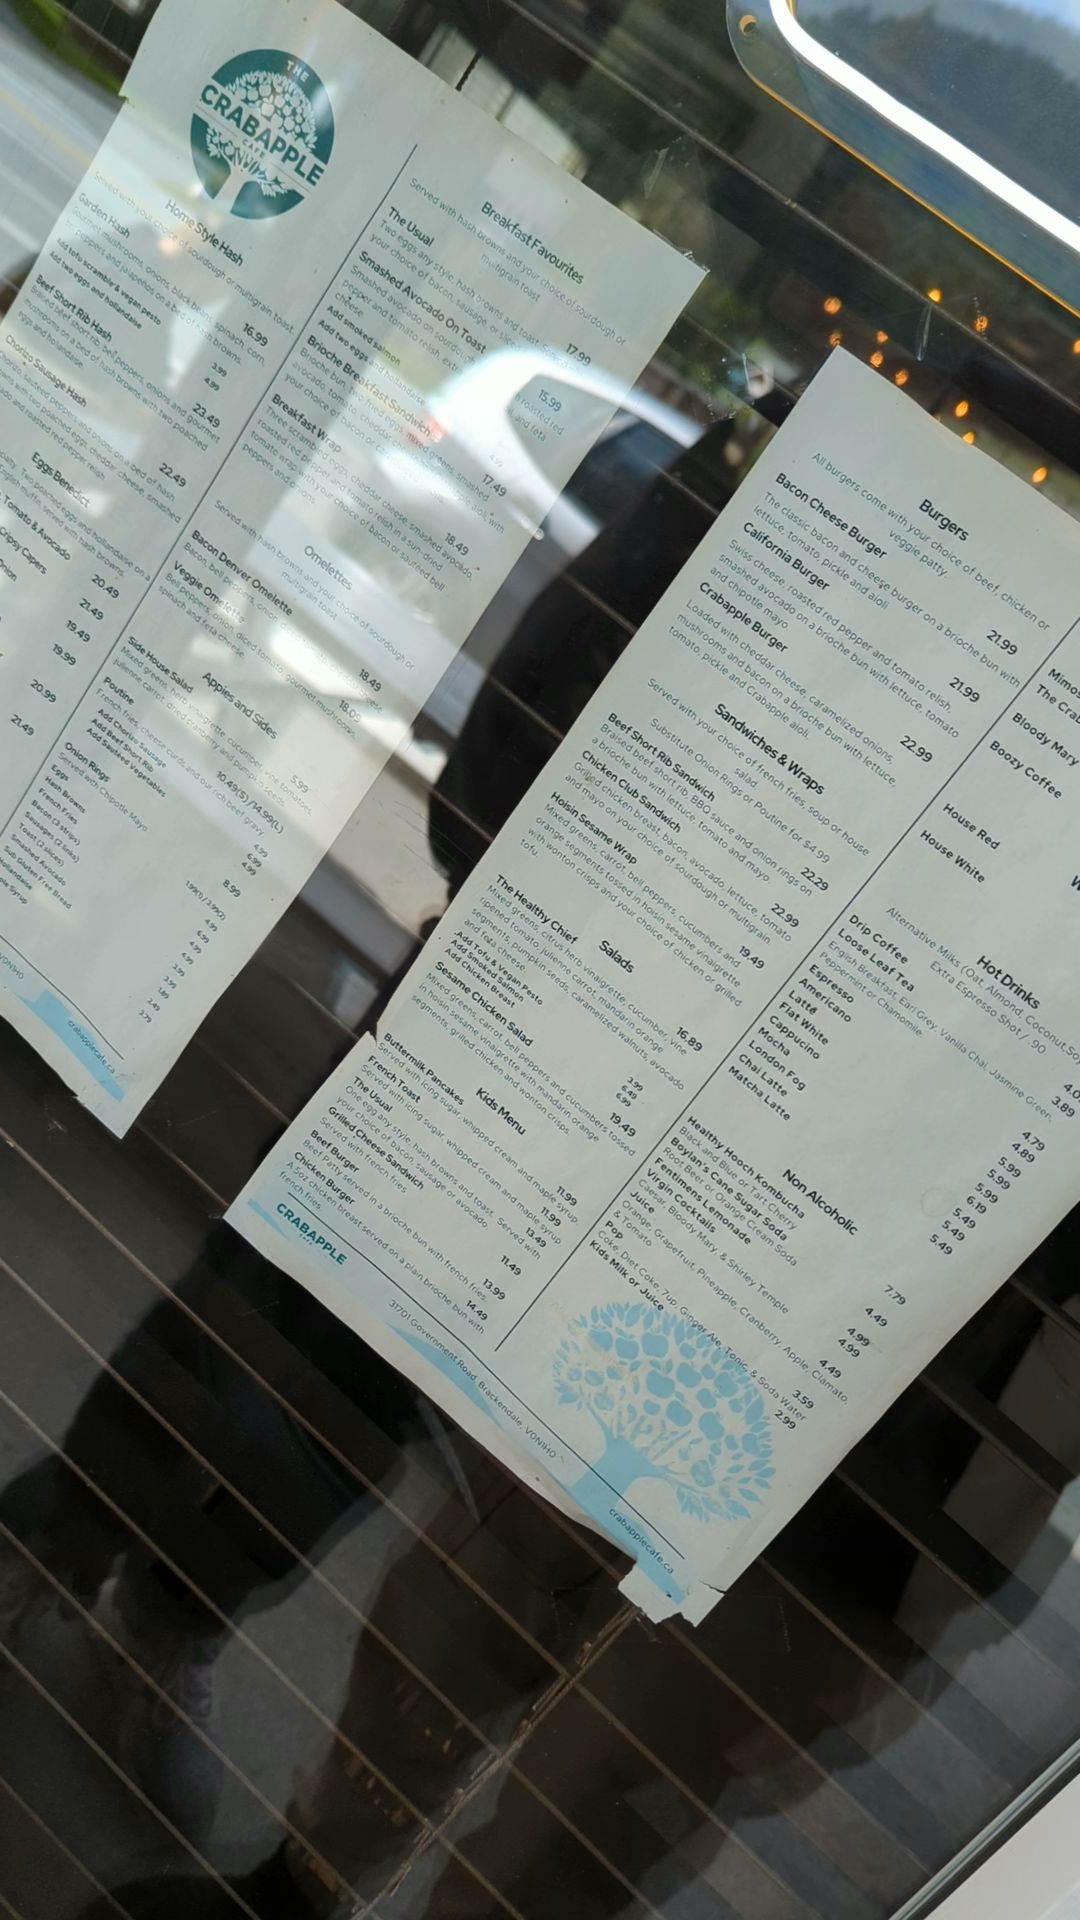 THE
CRABAPPLE
CAFE
Home Style Hash
Served with your choice of sourdough or multigrain toast
Garden Hash
Gourmet mushrooms, onions, black beans, spinach, corn,
peppers and jalapeños on a bed of hash browns.
16.99
Add tofu scramble & vegan pesto 3.99
Add two eggs and hollandaise 4.99
Beef Short Rib Hash
Braised beef short rib, bell peppers, onions and gourmet
mushrooms on a bed of hash browns with two poached
eggs and hollandaise.
23.49
Chorizo Sausage Hash
sauteed peppers and onions on a bed of hash
with two poached eggs, cheddar cheese, smashed
and roasted red pepper relish.
22.49
Eggs Benedict
Two poached eggs and hollandaise on a
English muffin, served with hash browns.
Tomato & Avocado 20.49
Crispy Capers 21.49
Onion 19.49
19.99
20.99
21.49
V0N1H0
crabapplecafe.ca
Breakfast Favourites
Served with hash browns and your choice of sourdough or
multigrain toast
The Usual
Two eggs any style, hash browns and toast,
your choice of bacon, sausage, or
17.99
Smashed Avocado On Toast
Smashed avocado on sourdough
roasted red
pepper and tomato relish,
and feta
cheese.
15.99
Add smoked salmon
Add two eggs and hollandaise 4.99
Brioche Breakfast Sandwich
Brioche bun, two fried eggs, mixed greens, smashed
avocado, tomato, cheddar cheese
aioli, with
your choice of bacon or
17.49
Breakfast Wrap
Three scrambled eggs, cheddar cheese, smashed avocado,
roasted red pepper and tomato relish in a sun dried
tomato wrap with your choice of bacon or sautéed bell
peppers and onions.
18.49
Omelettes
Served with hash browns and your choice of sourdough or
multigrain toast
Bacon Denver Omelette
Bacon, bell peppers, onion
18.49
Veggie Omelette
Bell peppers, onion, diced tomato, gourmet mushrooms,
spinach and feta cheese.
18.09
Appies and Sides
Side House Salad
Mixed greens, herb vinaigrette, cucumber, vine tomatoes,
julienne carrot, dried cranberry and pumpkin seeds
5.99
Poutine
French fries, cheese curds and our rich beef gravy
10.49(S) / 14.99(L)
Add Chorizo Sausage 4.99
Add Beef Short Rib 6.99
Add Sauteed Vegetables 4.99
Onion Rings
Served with Chipotle Mayo
8.99
Eggs 1.99(1) / 3.99(2)
Hash Browns 4.99
French Fries 6.99
Bacon (3 strips) 4.99
Sausages (2 links) 4.99
Toast (2 slices)
Smashed Avocado
Sub Gluten Free Bread
Hollandaise 2.49
Syrup 2.79
Burgers
All burgers come with your choice of beef, chicken or
veggie patty.
Bacon Cheese Burger
The classic bacon and cheese burger on a brioche bun with
lettuce, tomato, pickle and aioli
21.99
California Burger
Swiss cheese, roasted red pepper and tomato relish,
smashed avocado on a brioche bun with lettuce, tomato
and chipotle mayo.
21.99
Crabapple Burger
Loaded with cheddar cheese, caramelized onions,
mushrooms and bacon on a brioche bun with lettuce,
tomato, pickle and Crabapple aioli.
22.99
Sandwiches & Wraps
Served with your choice of french fries, soup or house
salad.
Substitute Onion Rings or Poutine for $4.99
Beef Short Rib Sandwich
Braised beef short rib, BBQ sauce and onion rings on
a brioche bun with lettuce, tomato and mayo.
22.29
Chicken Club Sandwich
Grilled chicken breast, bacon, avocado, lettuce, tomato
and mayo on your choice of sourdough or multigrain.
22.99
Hoisin Sesame Wrap
Mixed greens, carrot, bell peppers, cucumbers and
orange segments tossed in hoisin sesame vinaigrette
with wonton crisps and your choice of chicken or grilled
tofu.
19.49
Salads
The Healthy Chief
Mixed greens, citrus herb vinaigrette, cucumber, vine
ripened tomato, julienne carrot, mandarin orange
segments, pumpkin seeds, caramelized walnuts, avocado
and feta cheese
16.89
Add Tofu & Vegan Pesto 3.99
Add Smoked Salmon 6.49
Add Chicken Breast 6.99
Sesame Chicken Salad
Mixed greens, carrot, bell peppers and cucumbers tossed
in hoisin sesame vinaigrette with mandarin orange
segments, grilled chicken and wonton crisps.
19.49
Kids Menu
Buttermilk Pancakes
Served with icing sugar, whipped cream and maple syrup.
11.99
French Toast
Served with icing sugar, whipped cream and maple syrup
11.99
The Usual
One egg any style, hash browns and toast. Served with
your choice of bacon, sausage or avocado.
13.49
Grilled Cheese Sandwich
Served with french fries
11.49
Beef Burger
Beef Patty served in a brioche bun with french fries.
13.99
Chicken Burger
A 5oz chicken breast served on a plain brioche bun with
french fries.
14.49
CRABAPPLE
CAFE
31701 Government Road, Brackendale, V0N1H0
crabapplecafe.ca
Mimos
The Crab
Bloody Mary
Boozy Coffee
House Red
House White
W
Hot Drinks
Alternative Milks (Oat, Almond, Coconut, So
Extra Espresso Shot / .90
Drip Coffee 4.0
Loose Leaf Tea 3.89
English Breakfast, Earl Grey, Vanilla Chai, Jasmine Green,
Peppermint or Chamomile.
Espresso 4.79
Americano 4.89
Latté 5.99
Flat White 5.99
Cappucino 5.99
Mocha 6.19
London Fog 5.49
Chai Latte 5.49
Matcha Latte 5.49
Non Alcoholic
Healthy Hooch Kombucha 7.79
Black and Blue or Tart Cherry
Boylan's Cane Sugar Soda 4.49
Root Beer or Orange Cream Soda
Fentimens Lemonade 4.99
Virgin Cocktails 4.99
Caesar, Bloody Mary, & Shirley Temple
Juice 4.49
Orange, Grapefruit, Pineapple, Cranberry, Apple, Clamato,
& Tomato
Pop 3.59
Coke, Diet Coke, 7up, Ginger Ale, Tonic, & Soda Water
Kids Milk or Juice 2.99